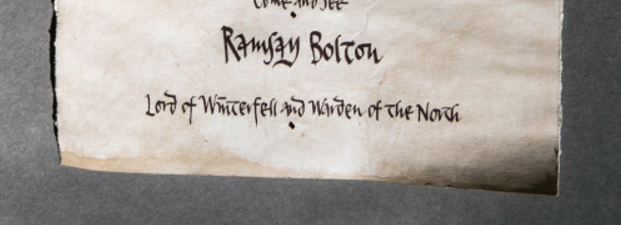 Come and see
Ramsay Bolton
Lord of Winterfell and Warden of the North